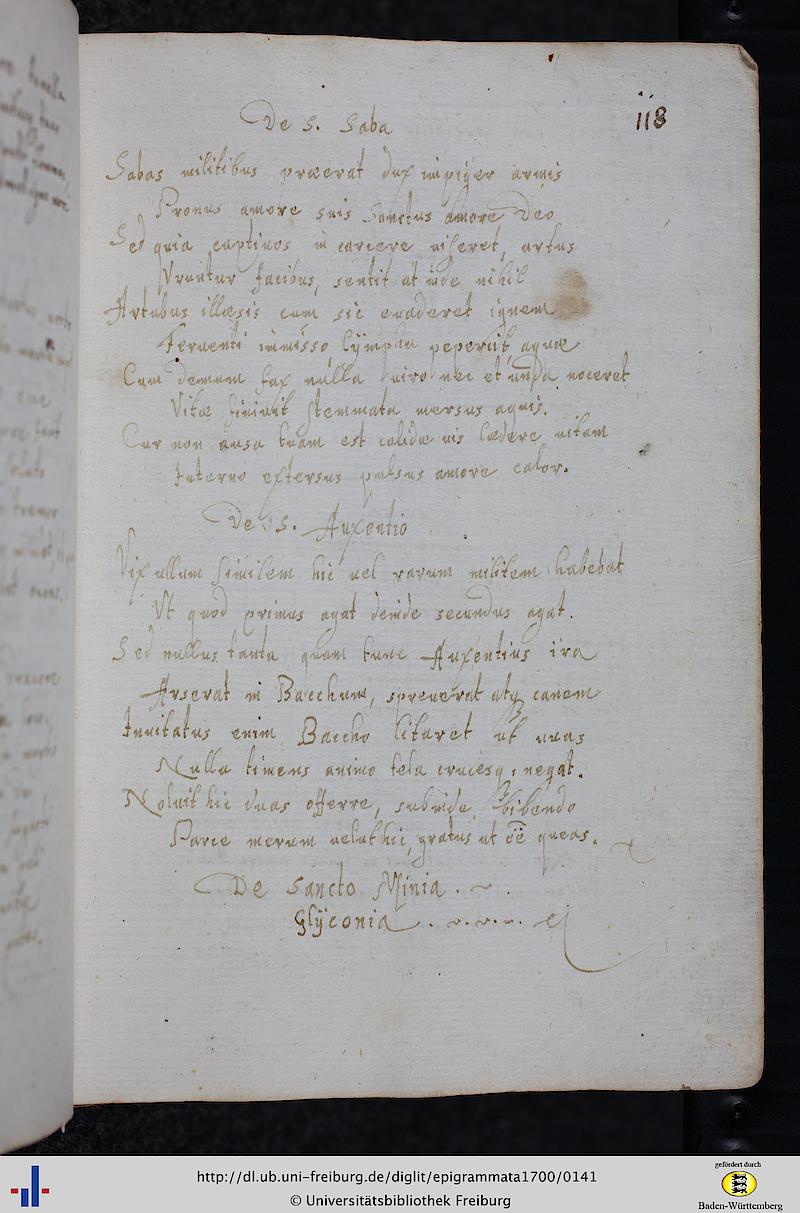 118
De S. Saba
Sabas militibus præerat dux impiger armis
Pronus amore suis Sanctus amore Deo
Sed quia captiuos in carcere uiseret, artus
Vruntur facibus, sentit at inde nihil
Artubus illæsis cum sic euaderet ignem
Feruenti immisso, lÿmpha pepercit, aquæ
Cum demum fax nulla uiro nec et unda noceret
Vitæ finiuit stemmata mersus aquis.
Cur non ausa tuam est calidæ uis lædere uitam
Interno extersus pulsus amore calor.
De S. Auxentio
Vix ullum similem hic uel rarum militem habebat
Vt quod primus agat deinde secundus agat.
Sed nullus tanta quam tunc Auxentius ira
Arserat in Bacchum, spreuerat atq canem
Inuitatus enim Baccho litaret ut uuas
Nulla timens animo tela crucesq, negat.
Noluit hic uuas offerre, subinde bibendo
Parce merum uelut hic, gratus ut cē queas.
De Sancto Minia.
Glÿconia.
http://dl.ub.uni-freiburg.de/diglit/epigrammata1700/0141
© Universitätsbibliothek Freiburg
gefördert durch
Baden-Württemberg